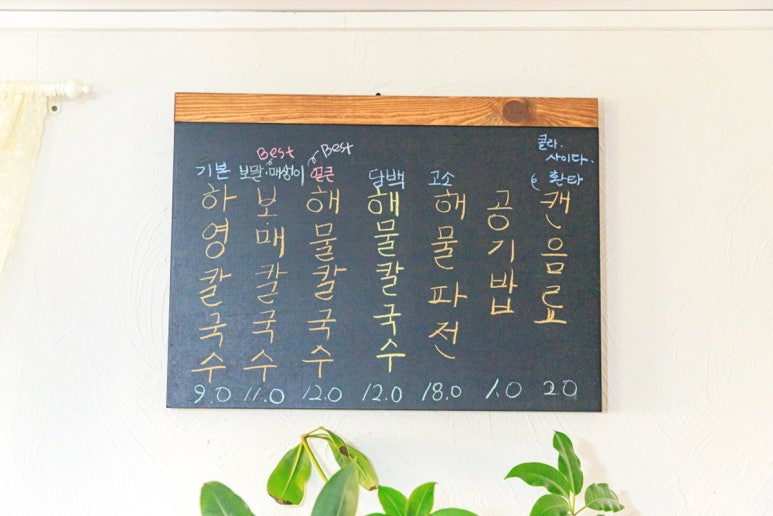 기본
하영칼국수
9.0
Best
보말·매생이
보·매칼국수
11.0
Best
얼큰
해물칼국수
12.0
담백
해물칼국수
12.0
고소
해물파전
18.0
공기밥
1.0
콜라.
사이다.
환타
캔음료
2.0